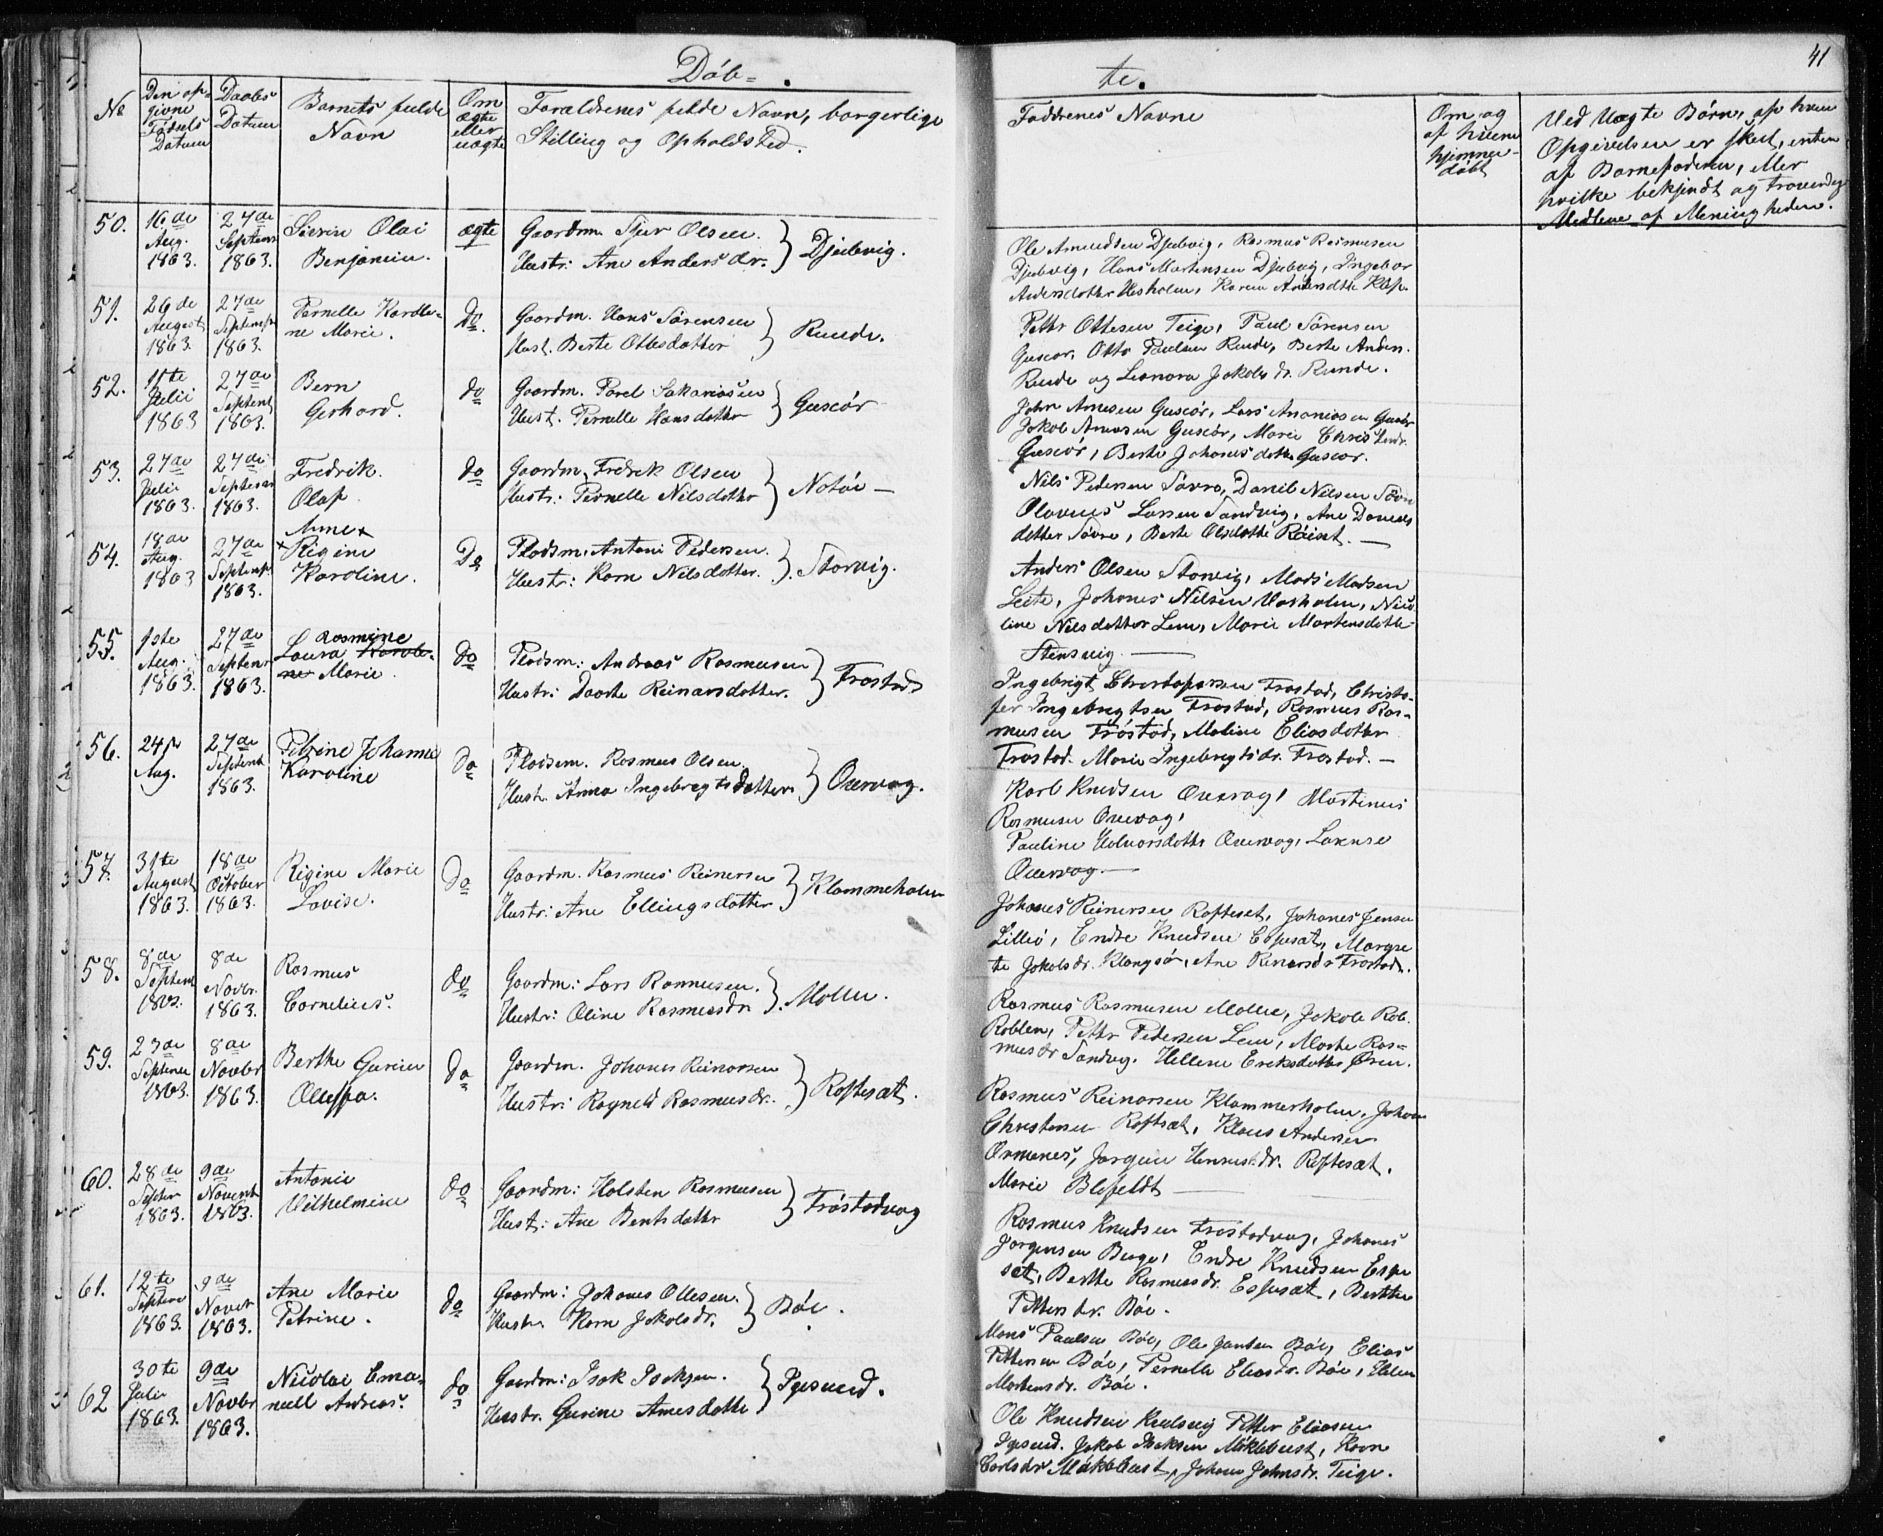 Döb-
te.
41
No
Den op-
givne
Fødsels
Datum
Daabs
Datum
Barnets fulde
Navn
Om
ægte
eller
uægte
Forældrenes fulde Navn, borgerlige
Stilling og Opholdsted.
Faddrenes Navne
Om og
af hvem
hjemme-
døbt
Ved Uægte Børn, af hvem
Opgivelsen er skeet, enten
af Barnefaderen, eller
hvilke bekjendt og troværdige
Medlem af Menigheden.
50.
16de
Aug.
1863.
27de
Septem
1863.
Sivrin Olai
Benjamin.
ægte
Gaardm. Sjur Olsen.
Hustr: Ane Andersdr.
Djubvig.
Ole Amundsen Djubvig, Rasmus Rasmusen
Djubvig, Hans Martensen Djubvig, Ingebor
Andersdotter Husholm, Karen
51.
26de
August
1863.
27de
Septemp
1863.
Pernelle Karoli-
ne Marie.
Do.
Gaardm. Hans Sørensen
Hust. Berte Ottesdotter
Runde.
Petter Ottesen Teige, Paul Sørensen
Guscør, Otto Paulsen Runde, Berte Anders.
Runde og Leonora Jakobsdr. Runde.
52.
11te
Julii
1863
27de
Septemt
1863.
Bern
Gerhard.
do
Gaardm. Parel Sakariasen
Hust. Pernelle Hansdotter
Guscør
John Arnesen Guscør, Lars Ananiasen Guscør
Jakob Arnesen Guscør, Marie Christensdr.
Guscør, Berte Johanesdotter Guscør.
53.
27de
Julii
1863.
27de
Septemr
1863.
Fredrik
Olaf
do
Gaardm. Fredrik Olsen
Hustr: Pernelle Nilsdotter
Notøe —
Nils Pedersen Søvre, Daniel Nilsen Søvre
Olavus Larsen Sandvig, Ane Daniels
dotter Søvre, Berte Olsdotter Røiset. —
54.
18de
Aug.
1863
27de
Septemp.
1863.
Anne x
x Rigine
Karoline.
Do
Pladsm. Antoni Pedersen.
Hustr: Karn Nilsdotter.
Storvig.
Anders Olsen Storvig, Mads Madsen
Leite, Johanes Nilsen Varholm, Nico
line Nilsdotter Lem, Marie Martensdotte
Stensvig. —
55.
1ste
Aug.
1863.
27de
Septemr
1863.
Rasmine
Laura Karoli-
ne Marie.
do
Pladsm: Andreas Rasmusen
Hustr: Daarte Reinarsdotter.
Frøstad
Ingebrigt Christopersen Frøstad, Christo-
fer Ingebrigtsen Frøstad, Rasmus Ras-
musen Frøstad, Maline Eliasdotter
Frøstad. Marie Ingebrigtsdr. Frøstad. —
56.
24de
Aug.
27de
Septemt
1863.
Petrine Johanna
Karoline
do
Pladsem. Rasmus Olsen.
Hustr. Anna Ingebregtsdotter
Overvog.
Karl Knudsen Overvog, Martinus
Rasmusen Overvog,
Pauline Halvorsdotter Overvog, Lovense
Overvog —
57.
31te
August
1863.
18de
October
1863.
Rigine Marie
Lovise.
Do
Gaardm. Rasmus Reinersen
Hustr: Ane Ellingsdotter
Klammeholm
Johanes Reinersen Roftesæt, Johanes Jensen
Lilleø, Endre Knudsen Espesæt, Margre
te Jakobsdr. Klongsør, Ane Reinersdr. Frøstad.
58.
8de
Septem
1863.
8de
Novbr.
1863.
Rasmus
Cornelius.
do
Gaardm: Lars Rasmusen.
Hustr: Oline Rasmusdr.
Molln.
Rasmus Rasmusen Molln, Jakob Rob.
Roblen, Petter Pedersen Lem, Marte Ras-
musdr Sandvig. Hellene Ericksdotter Øren.
59.
23de
Septemr
1863.
8de
Novbr
1863.
Berthe Gurine
Oleffa.
Do
Gaardm. Johanes Reinarsen
Hustr: Ragneld Rasmusdr.
Roftesæt.
Rasmus Reinarsen Klammerholm, Johan
Christensen Roftsæt, Klaus Andersen
Ormenes, Jørgine Hennesdr. Roftesæt.
Marie Blefeldt —
60.
28de
Septr
1863.
9de
Novemb
1863.
Antonie
Vilhelmine
do
Gaardm: Holsten Rasmusen
Hust: Ane Bentsdotter
Frøstadvog
Rasmus Knudsen Frøstadvog, Johanes
Jørgensen Berge, Endre Knudsen Espe
sæt, Berthe Rasmusdr. Espesæt, Berthe
Pettersdr. Bøe.
61.
12te
Septem
1863.
9de
Novbr
1863.
Ane Marie
Petrine.
do
Gaardm: Johanes Ollesen.
Hustr. Karn Jakobsdr.
Bøe.
Mons Paulsen Bøe, Ole Jantsen Bøe, Elias
Pettersen Bøe, Pernelle Eliasdr. Bøe, Ellen
Martensdr. Bøe.
62
30te
Julii
1863.
9de
Novbr
1863.
Nicolai Ema-
nuell Andreas.
do
Gaardm: Isak Isaksen.
Hustr. Gurine Arnesdotter
Igesund.
Ole Knudsen Kvalsvig, Petter Eliasen
Igesund. Jakob Isaksen Møklebust, Karn
Carlsdr Møklebust, Johane Johnsdr. Teige.